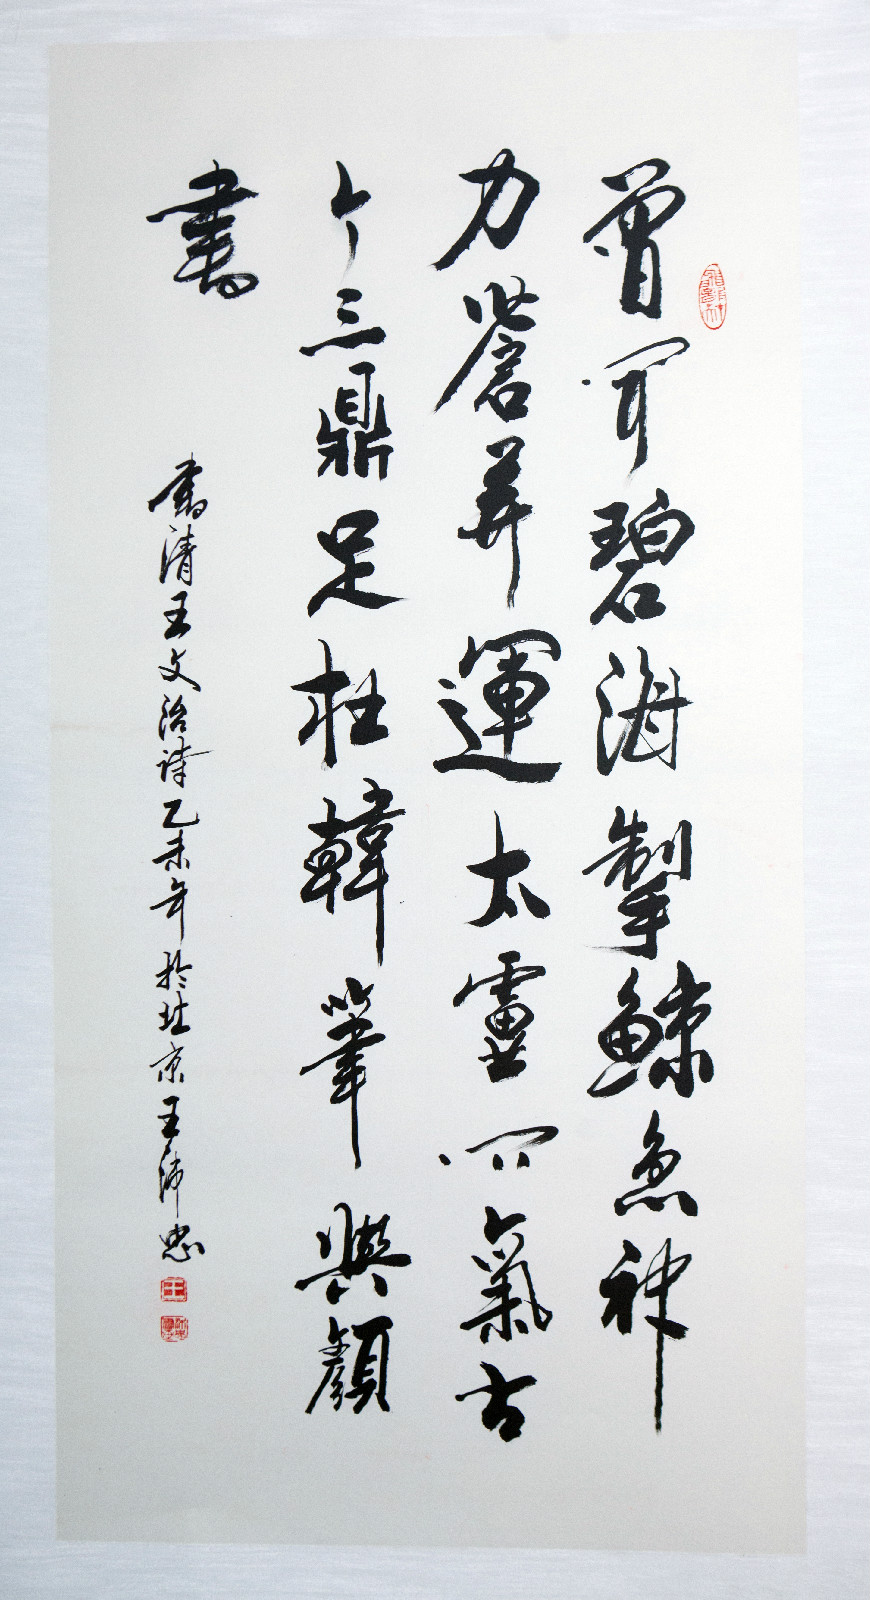 曾聞碧海掣鯨魚神
力蒼莽運太虛間氣古
今三鼎足杜韓筆與顏
書
書清王文治詩乙未年於北京王沛忠
王